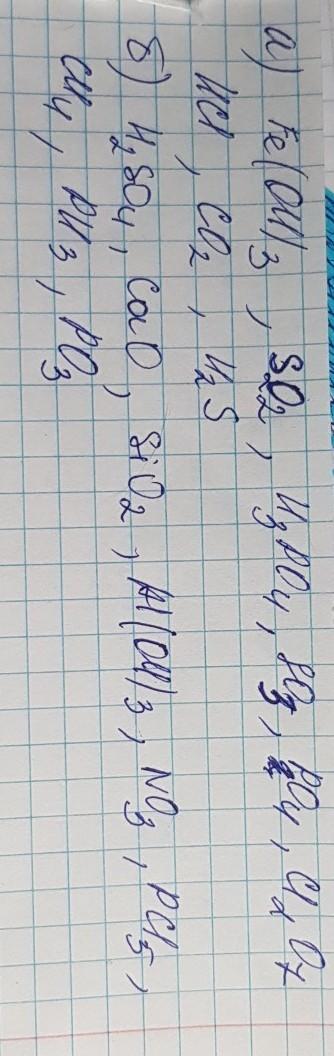 а) Fe(OH)3, SO2, H3PO4, SO3, PO4, Cl2O7
HCl, CO2, H2S
б) H2SO4, CaO, SiO2, Al(OH)3, NO3, PCl5,
CH4, PH3, PO3